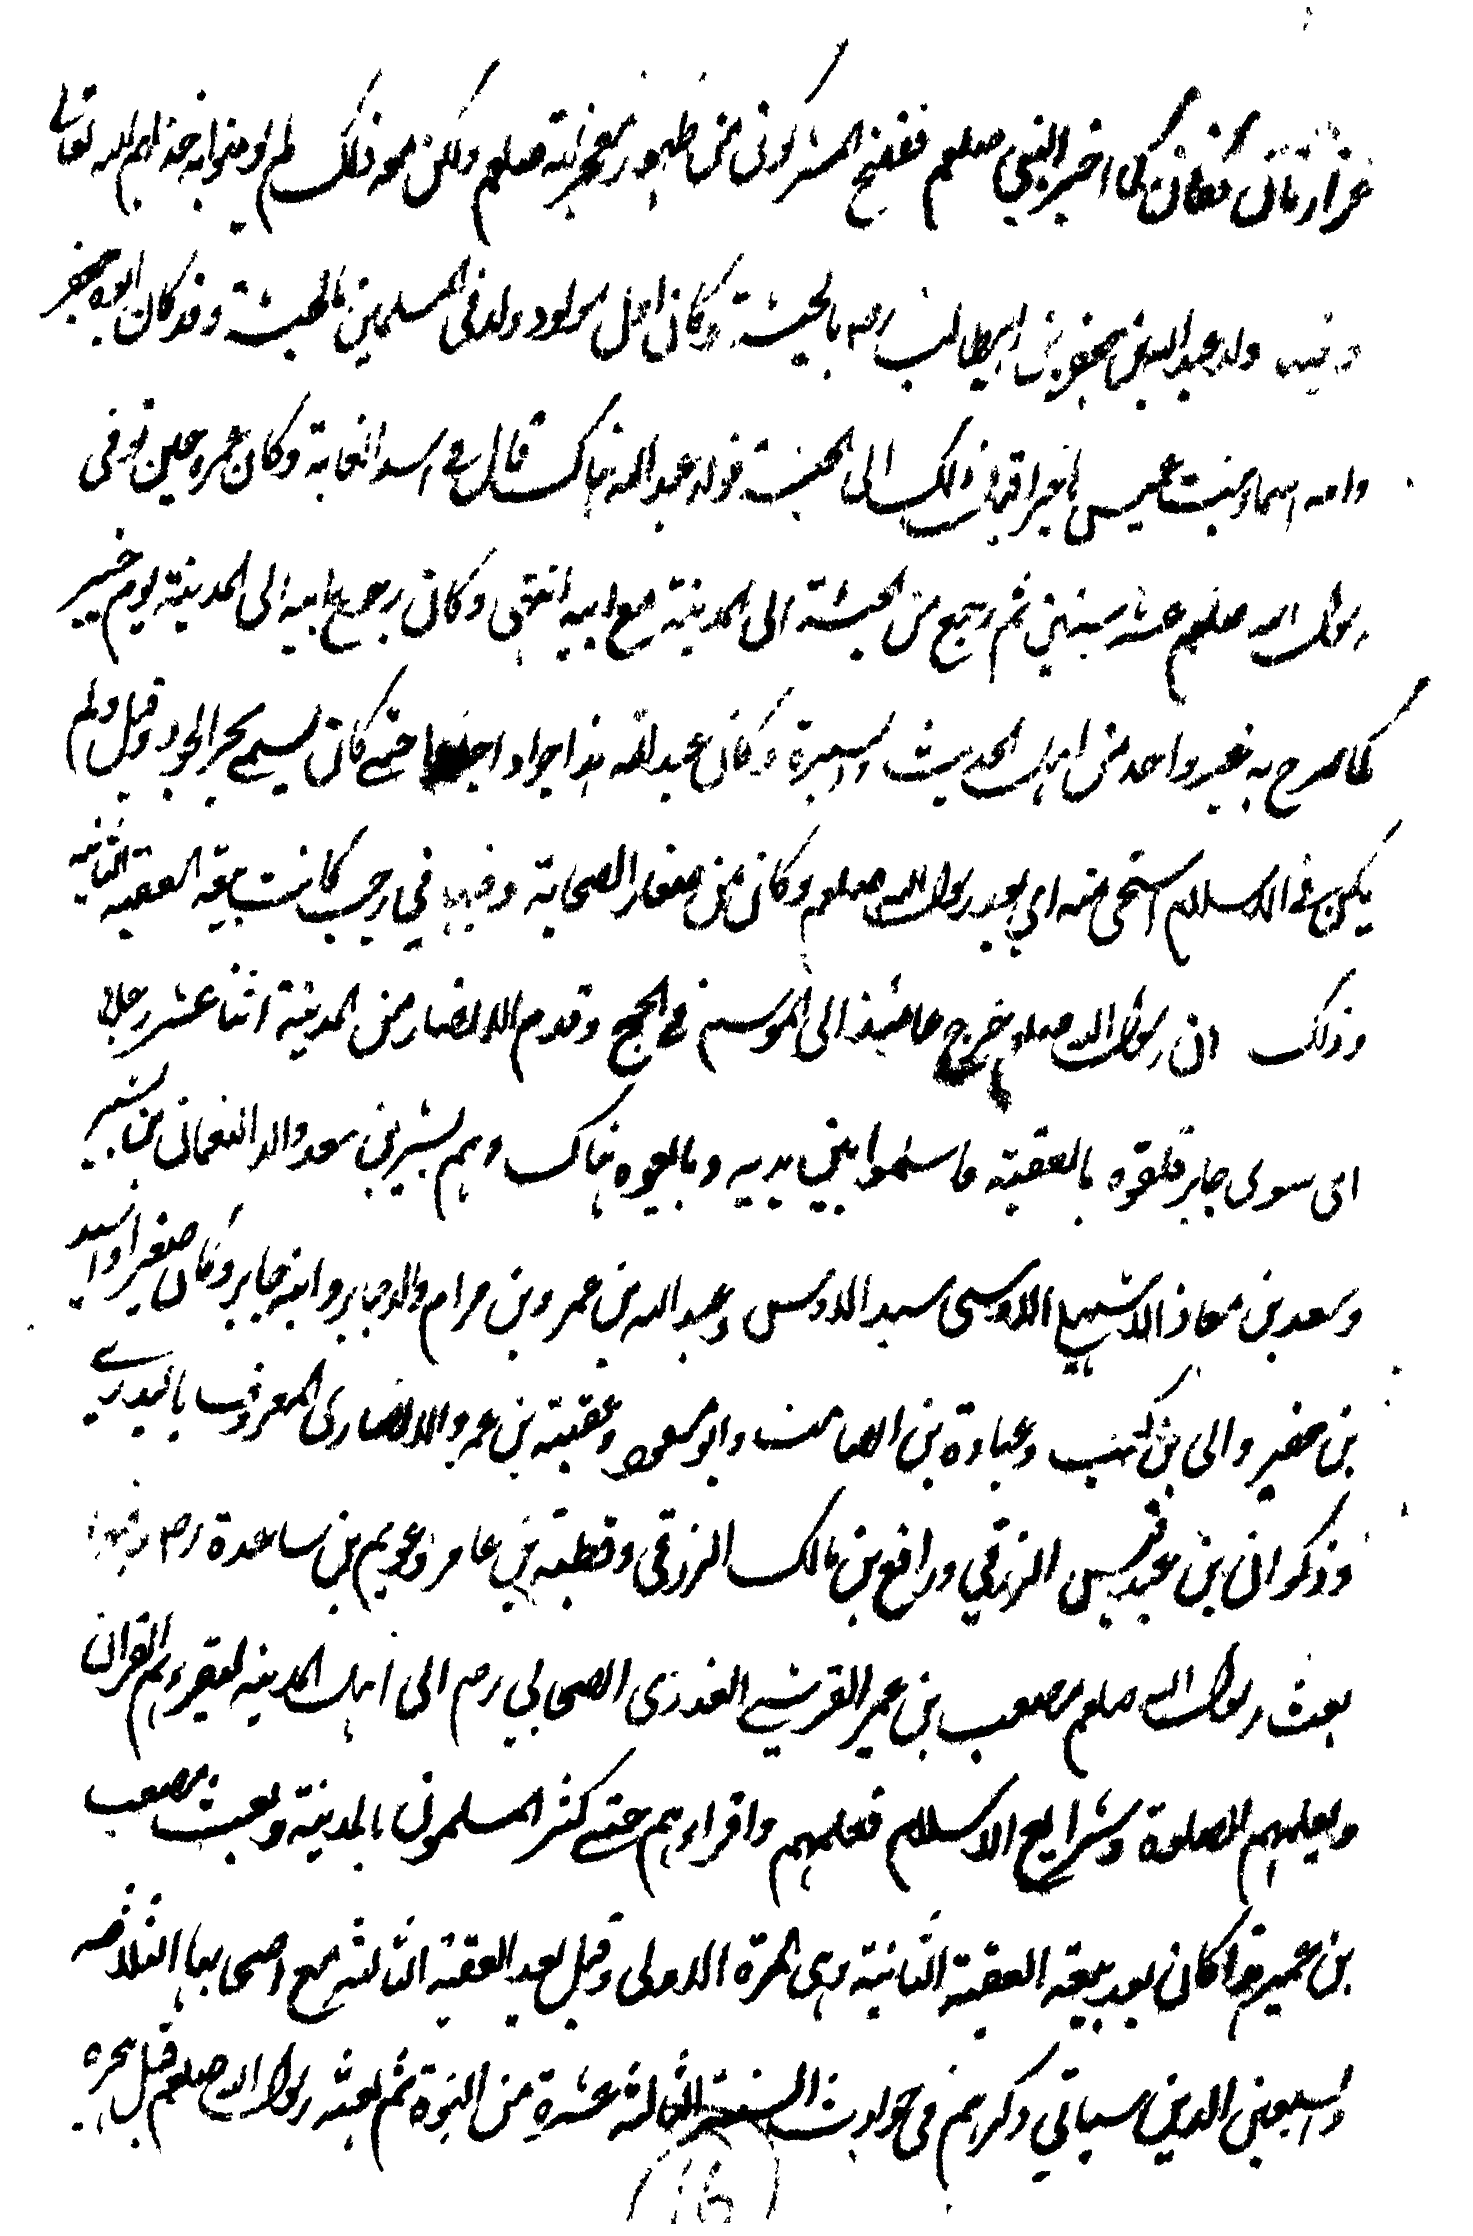 فكان كما اخبر النبي صلعم ففتح المشركون من ظهور معجزته صلعم ولكن مع ذلك لم يومنوا به خذلهم الله تعالى
وفيها ولد عبد الله بن جعفر بن ابيطالب رضه بالحبشة وكان اول مولود ولد في المسلمين بالحبشة وقد كان ابوه جعفر
وامه اسماء بنت عميس هاجرا قبل ذلك الى الحبشة فولد عبد الله هناك قال في اسد الغابة وكان عمره حين توفى
رسول الله صلعم عشر سنين ثم رجع من الحبشة الى المدينة مع ابيه انتهى وكان رجوع ابيه الى المدينة يوم خيبر
كما صرح به غير واحد من اهل الحديث والسيرة وكان عبد الله هذا جوادا حتى كان يسمى بحر الجود وقيل ولم
يكن في الاسلام اسخى منه اي بعد رسول الله صلعم وكان من صغار الصحابة وفيها في رجب كانت بيعة العقبة الثانية
وذلك ان رسول الله صلعم خرج حينئذ الى الموسم في الحج وقدم الانصار من المدينة اثنا عشر رجلا
اى سوى جابر فلقوه بالعقبة فاسلموا بين يديه وبايعوه هناك وهم بشير بن سعد والد النعمان بن بشير
وسعد بن معاذ الاشهلي الاوسى سيد الاوس وعبد الله بن عمرو بن حرام والد جابر وابنه جابر وكان صغيرا واسيد
بن حضير وابى بن كعب وعبادة بن الصامت وابو مسعود وعقبة بن عمرو الانصارى المعروف بالبدرے
وذكوان بن عبد قيس الزرقي ورافع بن مالك الزرقى وقطبة بن عامر وعويم بن ساعدة رضه وفيها
بعث رسول الله صلعم مصعب بن عمير القرشي العبدرى الصحابي رضه الى اهل المدينه ليقرءهم القران
ويعلمهم الصلوة وشرايع الاسلام فعلمهم واقراءهم حتے كثر المسلمون بالمدينة وبعث مصعب
بن عمير هذا كان بعد بيعة العقبة الثانية وهى المرة الاولى وقيل بعد العقبة الثالثه مع اصحابها الثلاثه
والسبعين الذين سياتي ذكرهم فى حوادث السنة الثالثة عشرة من النبوة ثم بعثه رسول الله صلعم قبل هجرته
(16)